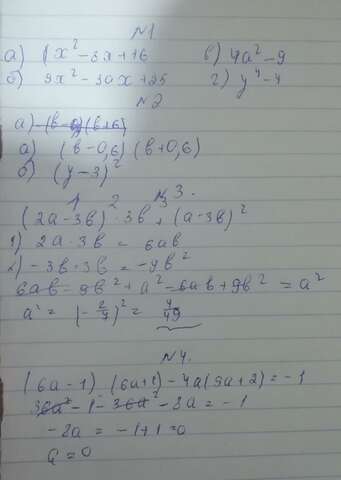 №1
а) x² - 8x + 16 в) 4a² - 9
б) 9x² - 30x + 25 г) y⁴ - 4
№2
а) (b - 6)(b + 6)
а) (b - 0,6) (b + 0,6)
б) (y - 3)²
1 2 №3.
(2a - 3b) · 3b + (a - 3b)²
1) 2a · 3b = 6ab
2) - 3b · 3b = - 9b²
6ab - 9b² + a² - 6ab + 9b² = a²
a² = (- 2/7)² = 4/49
№4.
(6a - 1) (6a + 1) - 4a(9a + 2) = - 1
36a² - 1 - 36a² - 8a = - 1
- 8a = - 1 + 1 = 0
a = 0